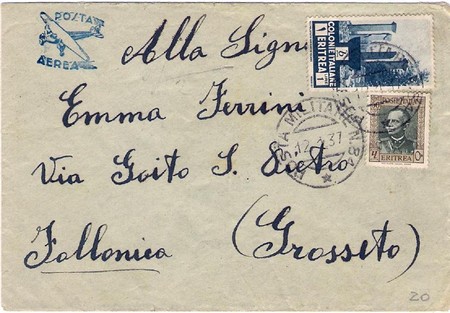 POSTA
AEREA
Alla Sign
Emma Ferrini
Via Goito S. Pietro
Follonica (Grosseto)
COLONIE ITALIANE
ERITREA
1
POSTA MILITARE N.
37
POSTE ITALIANE
ERITREA
20